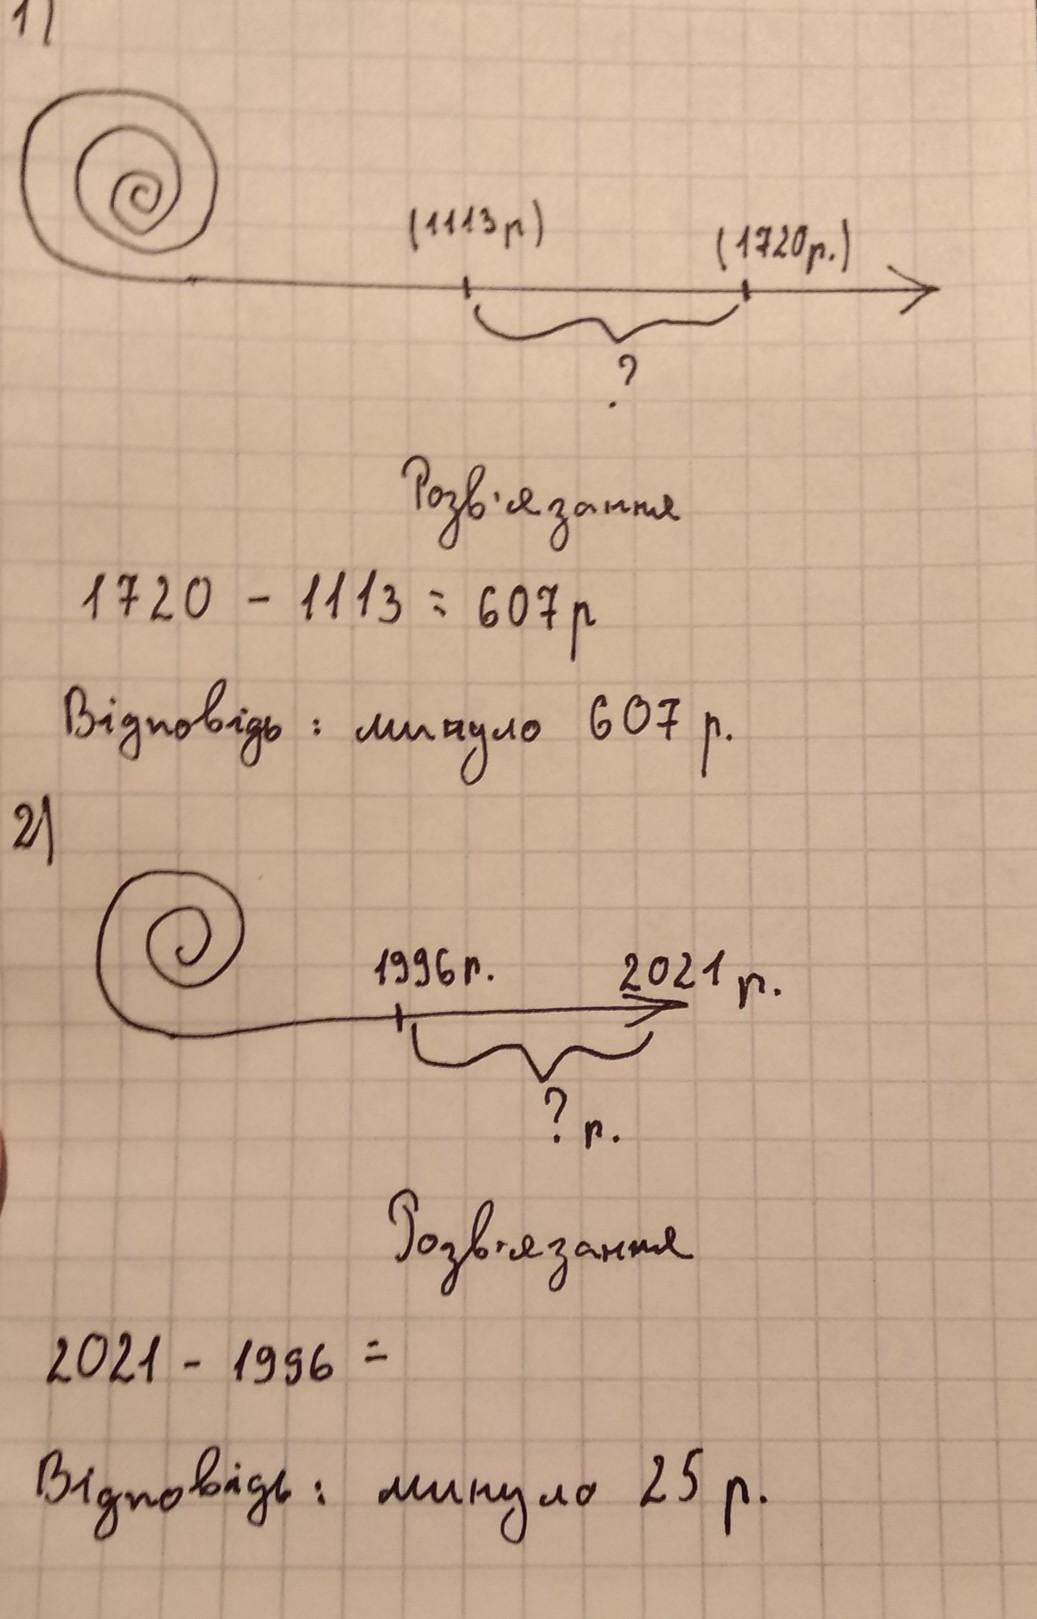 1)
(1113р) (1720р.)
?
Розв'язання
1720 - 1113 = 607р
Відповідь: минуло 607 р.
2)
1996р. 2021 р.
? р.
Розв'язання
2021 - 1996 =
Відповідь: минуло 25 р.